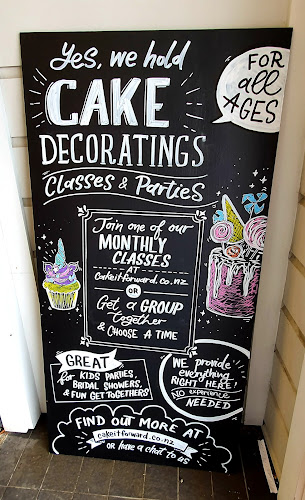 Yes, we hold
CAKE
DECORATINGS
Classes & Parties
FOR
all
AGES
Join one of our
MONTHLY
CLASSES
AT
cakeitforward.co.nz
OR
Get a GROUP
together
& CHOOSE A TIME
GREAT
for KIDS PARTIES,
BRIDAL SHOWERS,
& FUN GET TOGETHERS
WE provide
everything
RIGHT HERE!
NO experience
NEEDED
FIND OUT MORE AT
cakeitforward.co.nz
OR have a chat to us